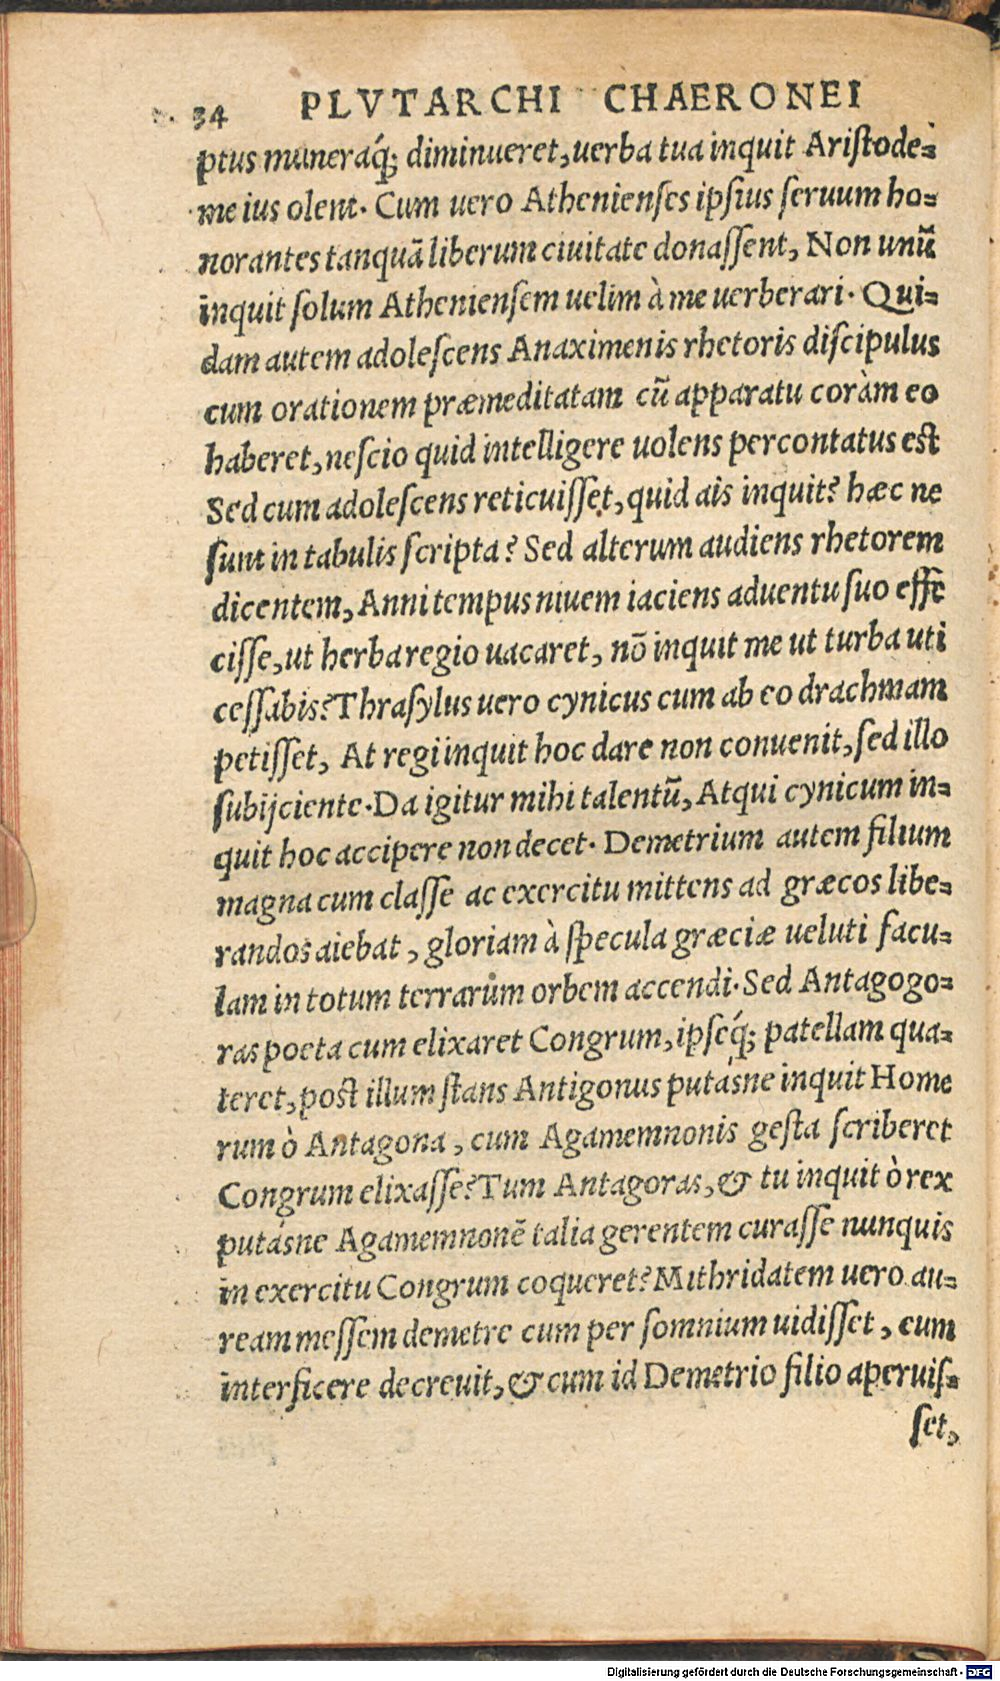 34 PLVTARCHI CHAERONEI
ptus muneraq́; diminueret, uerba tua inquit Aristode-
me ius olent. Cum uero Athenienses ipsius seruum ho-
norantes tanquã liberum ciuitate donassent, Non unũ
inquit solum Atheniensem uelim à me uerberari. Qui-
dam autem adolescens Anaximenis rhetoris discipulus
cum orationem præmeditatam cũ apparatu coràm eo
haberet, nescio quid intelligere uolens percontatus est
Sed cum adolescens reticuisset, quid ais inquit? hæc ne
sunt in tabulis scripta? Sed alterum audiens rhetorem
dicentem, Anni tempus niuem iaciens aduentu suo effe
cisse, ut herba regio uacaret, nõ inquit me ut turba uti
cessabis? Thrasylus uero cynicus cum ab eo drachmam
petisset, At regi inquit hoc dare non conuenit, sed illo
subijciente. Da igitur mihi talentũ, Atqui cynicum in-
quit hoc accipere non decet. Demetrium autem filium
magna cum classe ac exercitu mittens ad græcos libe-
randos aiebat, gloriam à specula græciæ ueluti facu-
lam in totum terrarum orbem accendi. Sed Antagogo-
ras poeta cum elixaret Congrum, ipseq́; patellam qua-
teret, post illum stans Antigonus putásne inquit Home
rum ò Antagona, cum Agamemnonis gesta scriberet
Congrum elixasse? Tum Antagoras, & tu inquit ò rex
putásne Agamemnonẽ talia gerentem curasse nunquis
in exercitu Congrum coqueret? Mithridatem uero au-
ream messem demetre cum per somnium uidisset, eum
interficere decreuit, & cum id Demetrio filio aperuis-
set,
Digitalisierung gefördert durch die Deutsche Forschungsgemeinschaft - DFG